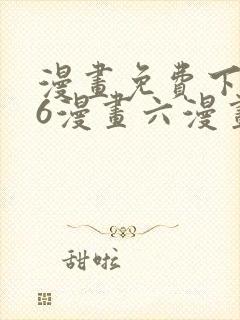 漫畫免費下
6漫畫六漫畫
甜啦